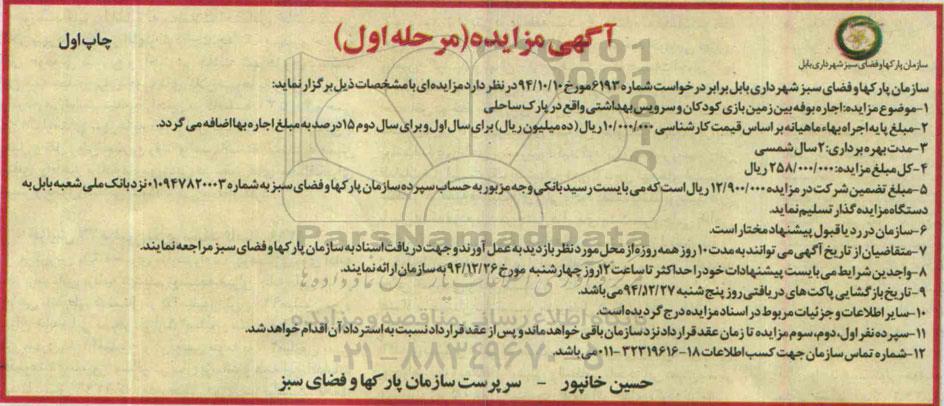 آگهی مزایده (مرحله اول)
چاپ اول
سازمان پارکها و فضای سبز شهرداری بابل
سازمان پارکها و فضای سبز شهرداری بابل برابر درخواست شماره ۶۱۹۳ مورخ ۹۴/۱۰/۱۰ در نظر دارد مزایده‌ای با مشخصات ذیل برگزار نماید:
۱-موضوع مزایده: اجاره بوفه بین زمین بازی کودکان و سرویس بهداشتی واقع در پارک ساحلی
۲-مبلغ پایه اجراه بهاء ماهیانه بر اساس قیمت کارشناسی ۱۰/۰۰۰/۰۰۰ ریال (ده میلیون ریال) برای سال اول و برای سال دوم ۱۵ درصد به مبلغ اجاره بها اضافه می گردد.
۳-مدت بهره برداری: ۲ سال شمسی
۴-کل مبلغ مزایده: ۲۵۸/۰۰۰/۰۰۰ ریال
۵-مبلغ تضمین شرکت در مزایده ۱۲/۹۰۰/۰۰۰ ریال است که می بایست رسید بانکی وجه مزبور به حساب سپرده سازمان پارکها و فضای سبز به شماره ۰۱۰۹۴۷۸۲۰۰۰۳ نزد بانک ملی شعبه بابل به
دستگاه مزایده گذار تسلیم نماید.
۶-سازمان در رد یا قبول پیشنهاد مختار است.
۷-متقاضیان از تاریخ آگهی می توانند به مدت ۱۰ روز همه روزه از محل مورد نظر بازدید به عمل آورند و جهت دریافت اسناد به سازمان پارکها و فضای سبز مراجعه نمایند.
۸-واجدین شرایط می بایست پیشنهادات خود را حداکثر تا ساعت ۱۲ روز چهارشنبه مورخ ۹۴/۱۲/۲۶ به سازمان ارائه نمایند.
۹-تاریخ بازگشایی پاکت های دریافتی روز پنج شنبه ۹۴/۱۲/۲۷ می باشد.
۱۰-سایر اطلاعات و جزئیات مربوط در اسناد مزایده درج گردیده است.
۱۱-سپرده نفر اول، دوم، سوم مزایده تا زمان عقد قرارداد نزد سازمان باقی خواهد ماند و پس از عقد قرارداد نسبت به استرداد آن اقدام خواهد شد.
۱۲-شماره تماس سازمان جهت کسب اطلاعات ۱۸-۳۲۳۱۹۶۱۶-۰۱۱ می باشد.
حسین خانپور - سرپرست سازمان پارکها و فضای سبز
ParsNamadData
۰۲۱-۸۸۳۴۹۶۷۰-۵